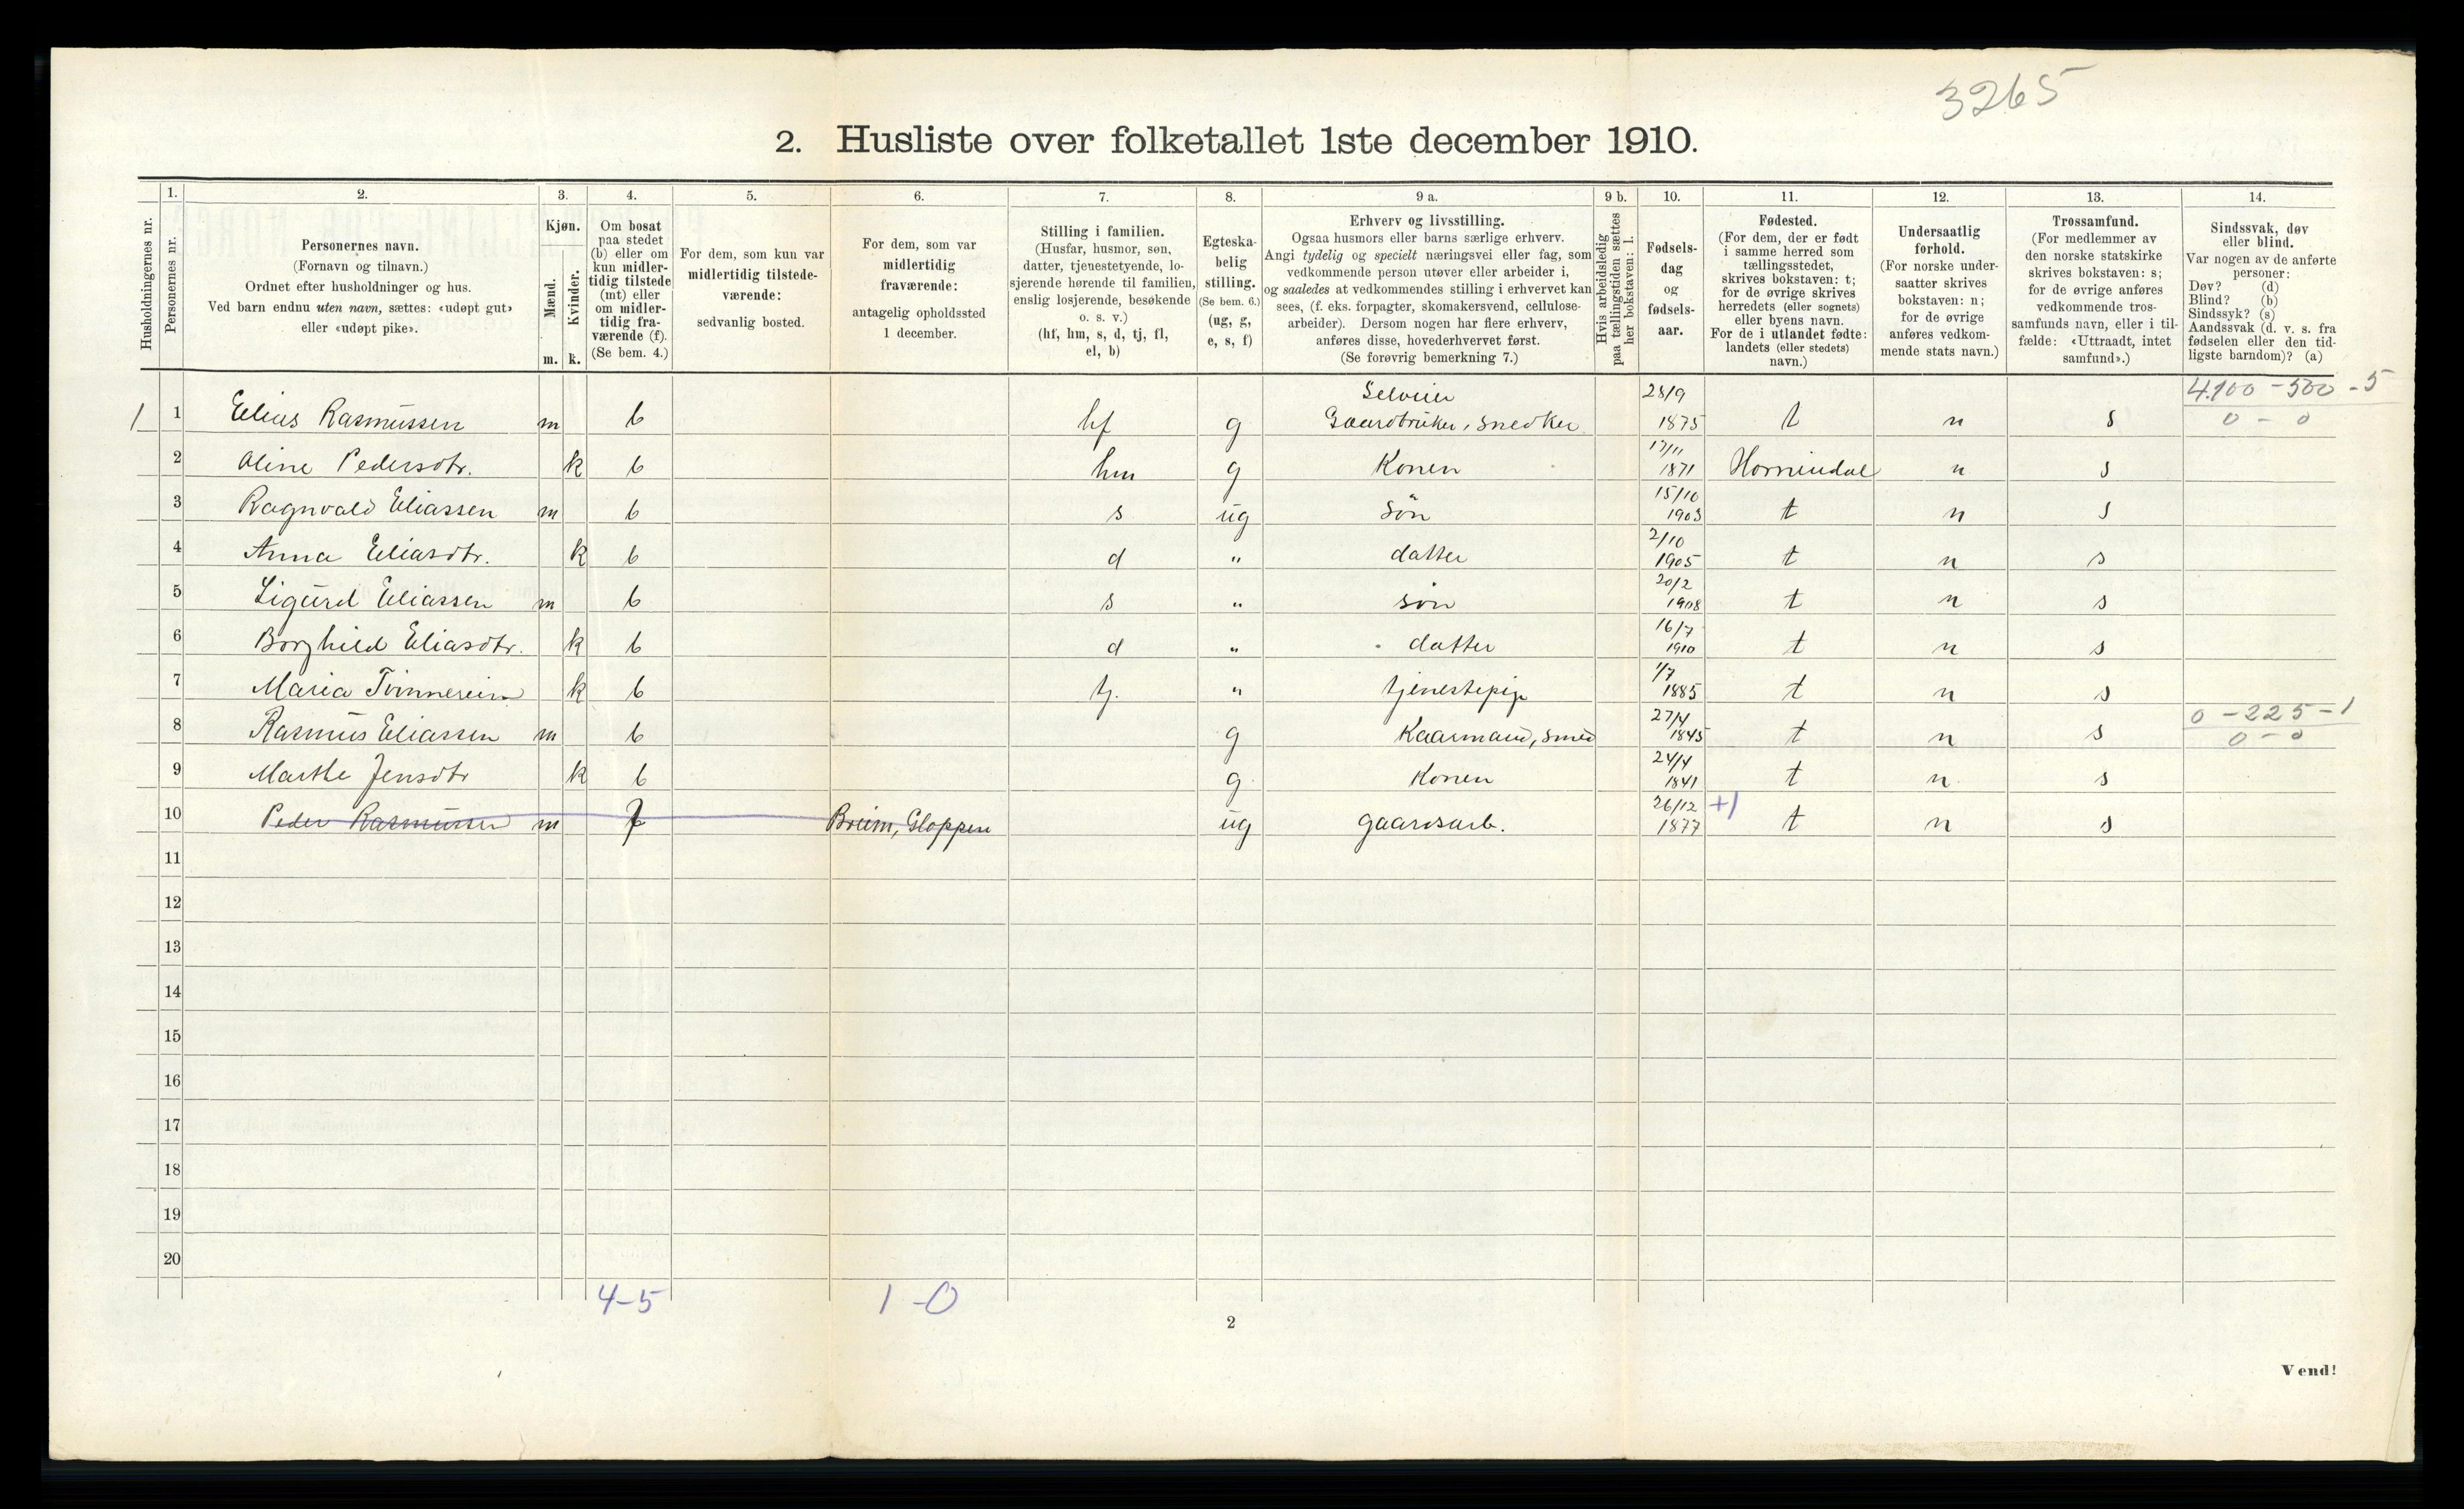 3265
2. Husliste over folketallet 1ste december 1910.
Husholdningernes nr.
1.
Personernes nr.
2.
Personernes navn.
(Fornavn og tilnavn.)
Ordnet efter husholdninger og hus.
Ved barn endnu uten navn, sættes: «udøpt gut»
eller «udøpt pike».
3.
Kjøn.
Mænd.
m.
Kvinder.
k.
4.
Om bosat
paa stedet
(b) eller om
kun midler-
tidig tilstede
(mt) eller
om midler-
tidig fra-
værende (f).
(Se bem. 4.)
5.
For dem, som kun var
midlertidig tilstede-
værende:
sedvanlig bosted.
6.
For dem, som var
midlertidig
fraværende:
antagelig opholdssted
1 december.
7.
Stilling i familien.
(Husfar, husmor, søn,
datter, tjenestetyende, lo-
sjerende hørende til familien,
enslig losjerende, besøkende
o. s. v.)
(hf, hm, s, d, tj, fl,
el, b)
8.
Egteska-
belig
stilling.
(Se bem. 6.)
(ug, g,
e, s, f)
9 a.
Erhverv og livsstilling.
Ogsaa husmors eller barns særlige erhverv.
Angi tydelig og specielt næringsvei eller fag, som
vedkommende person utøver eller arbeider i,
og saaledes at vedkommendes stilling i erhvervet kan
sees, (f. eks. forpagter, skomakersvend, cellulose-
arbeider). Dersom nogen har flere erhverv,
anføres disse, hovederhvervet først.
(Se forøvrig bemerkning 7.)
9 b.
Hvis arbeidsledig
paa tællingstiden sættes
her bokstaven: l.
10.
Fødsels-
dag
og
fødsels-
aar.
11.
Fødested.
(For dem, der er født
i samme herred som
tællingsstedet,
skrives bokstaven: t;
for de øvrige skrives
herredets (eller sognets)
eller byens navn.
For de i utlandet fødte:
landets (eller stedets)
navn.)
12.
Undersaatlig
forhold.
(For norske under-
saatter skrives
bokstaven: n;
for de øvrige
anføres vedkom-
mende stats navn.)
13.
Trossamfund.
(For medlemmer av
den norske statskirke
skrives bokstaven: s;
for de øvrige anføres
vedkommende tros-
samfunds navn, eller i til-
fælde: «Uttraadt, intet
samfund».)
14.
Sindssvak, døv
eller blind.
Var nogen av de anførte
personer:
Døv? (d)
Blind? (b)
Sindssyk? (s)
Aandssvak (d. v. s. fra
fødselen eller den tid-
ligste barndom)? (a)
Selveier 28/9 4.100 - 500 - 5
1 1 Elias Rasmussen m b hf g Gaardbruker, snedker 1875 t n s 0 - 0
17/11
2 Oline Pedersdtr. k b hm g Konen 1871 Hornindal n s
15/10
3 Ragnvald Eliassen m b s ug Søn 1903 t n s
2/10
4 Anna Eliasdtr. k b d " datter 1905 t n s
20/2
5 Sigurd Eliassen m b s " søn 1908 t n s
16/7
6 Borghild Eliasdtr. k b d " datter 1910 t n s
1/7
7 Maria Tvinnereim k b tj. " tjenestepige 1885 t n s
27/4 0 - 225 - 1
8 Rasmus Eliassen m b g Kaarmand, smed 1845 t n s 0 - 0
24/4
9 Marthe Jensdtr k b g Konen 1841 t n s
26/12 +1
10 Peder Rasmussen m f Breim, Gloppen ug gaardsarb. 1877 t n s
11
12
13
14
15
16
17
18
19
20
4-5 1-0
2
Vend!